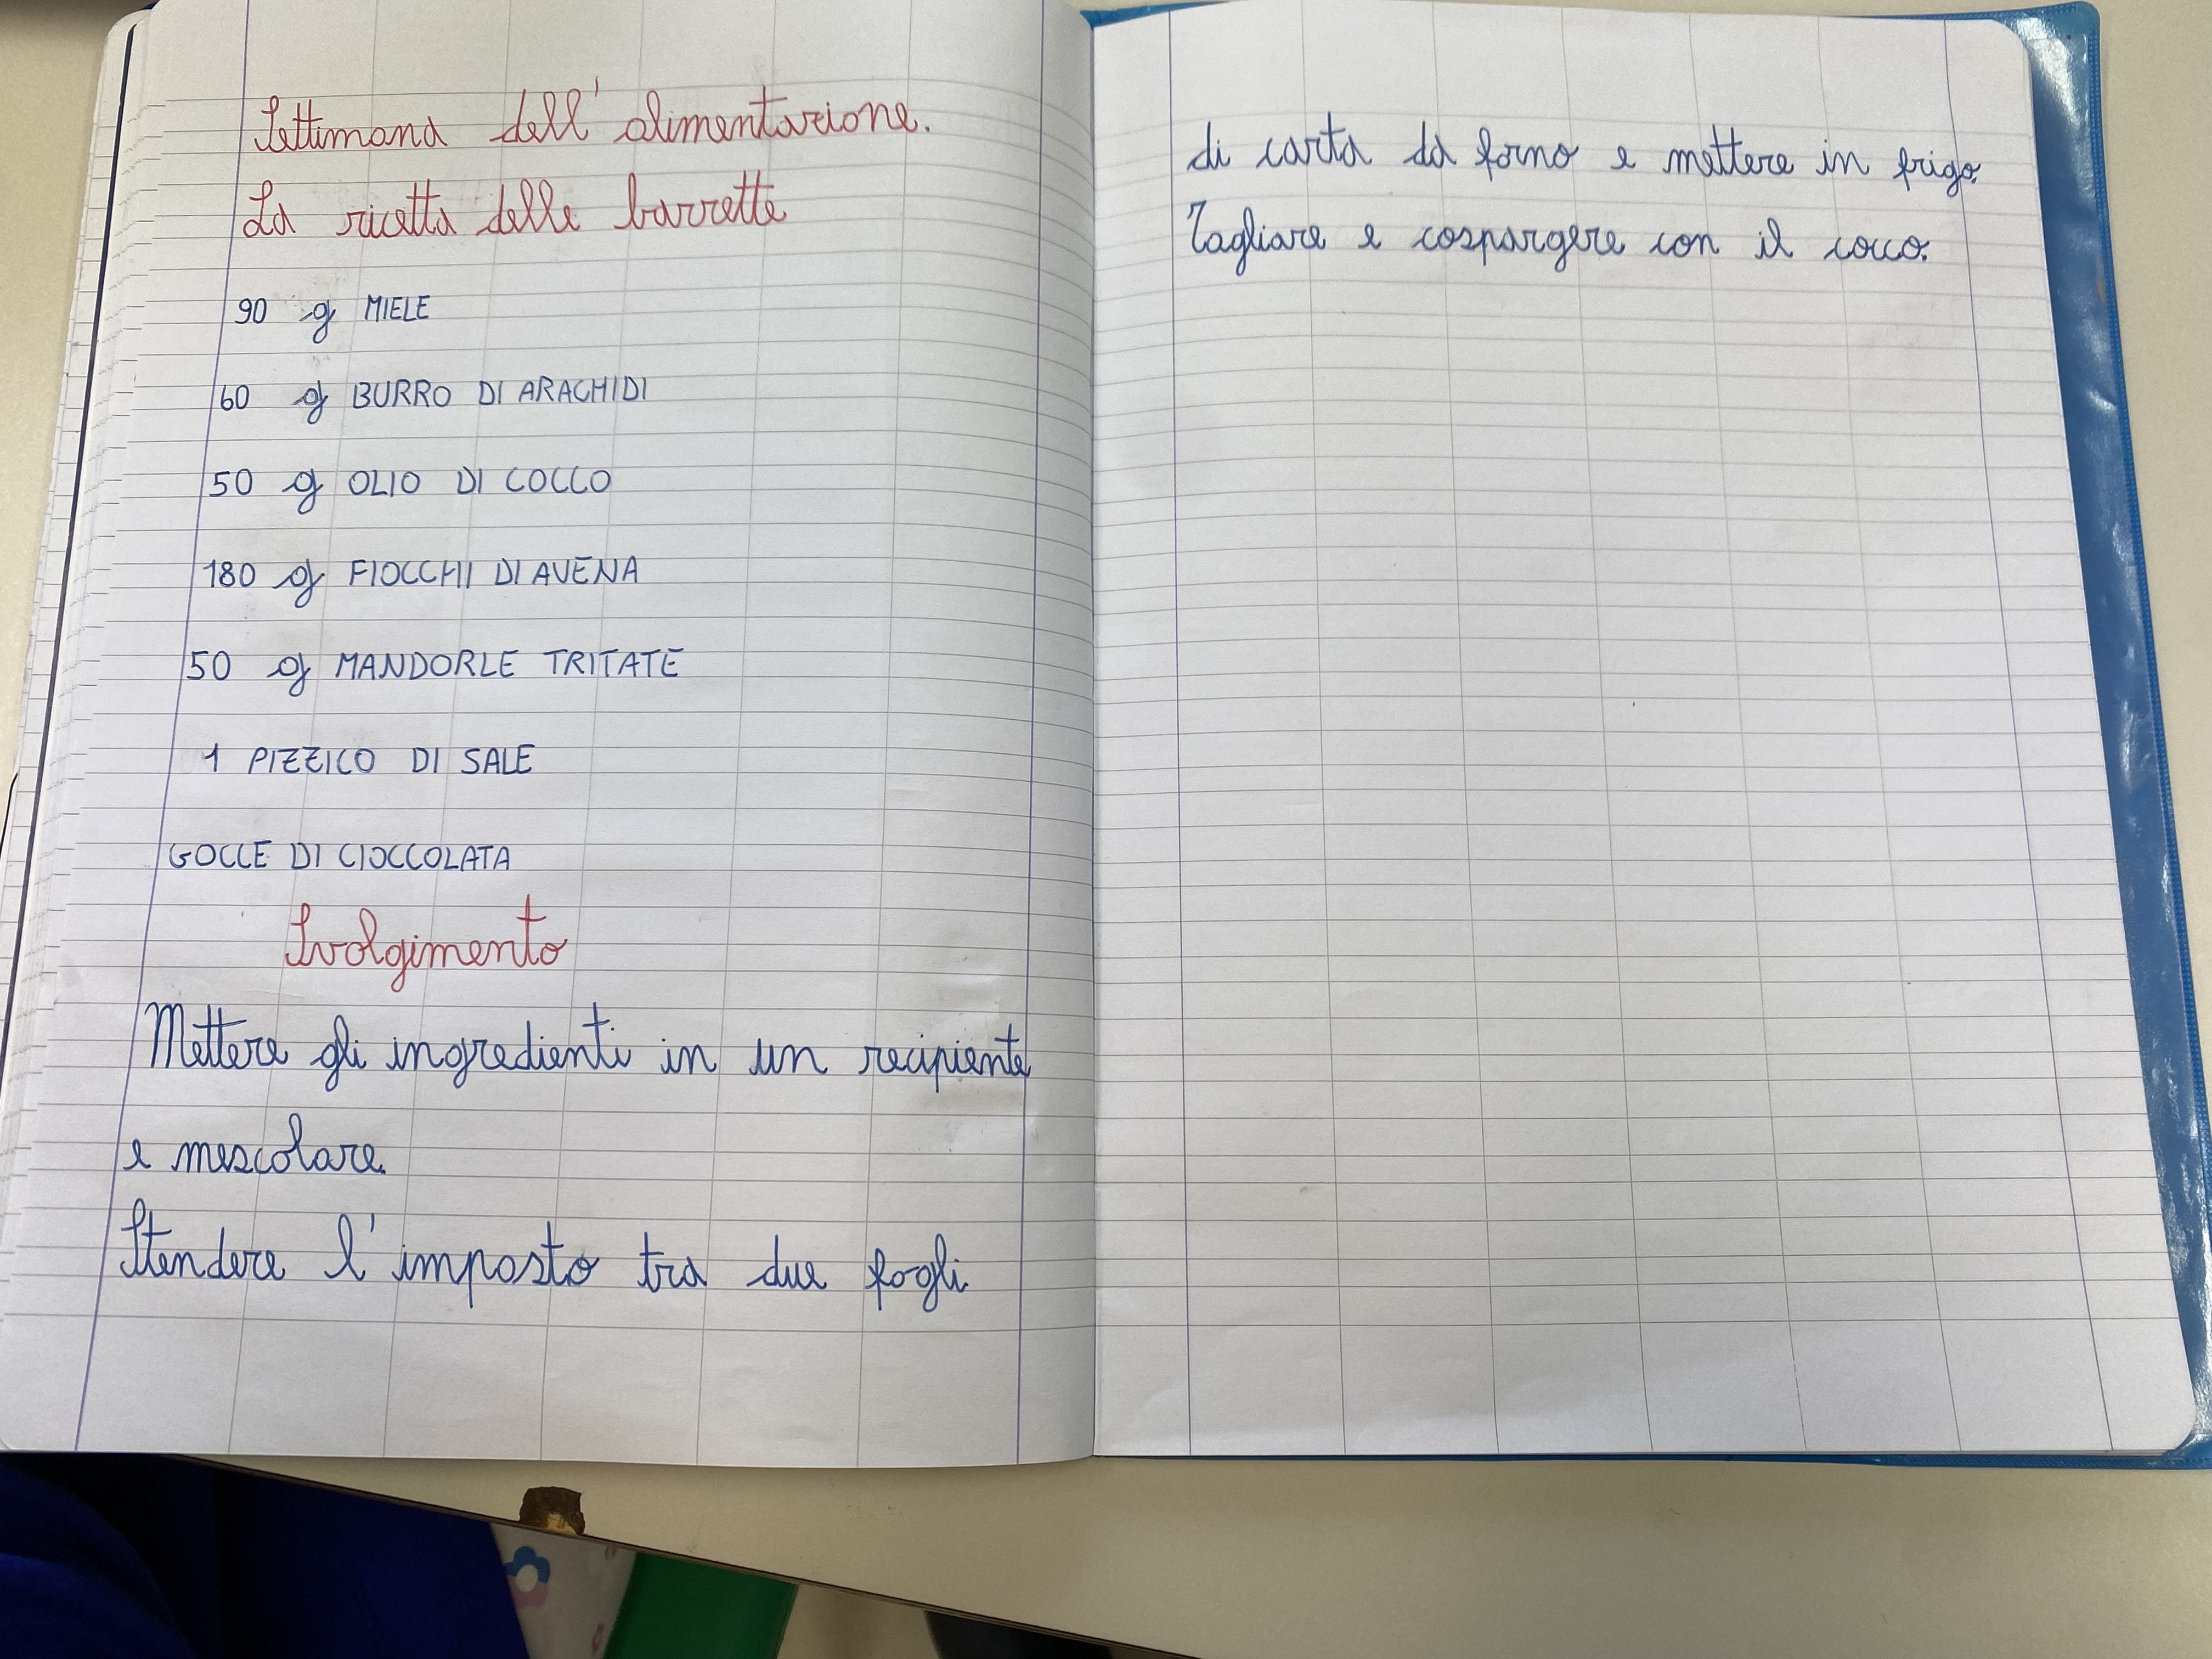 Settimana dell'alimentazione.
La ricetta delle barrette
90 g MIELE
60 g BURRO DI ARACHIDI
50 g OLIO DI COCCO
180 g FIOCCHI DI AVENA
50 g MANDORLE TRITATE
1 PIZZICO DI SALE
GOCCE DI CIOCCOLATA
Svolgimento
Mettere gli ingredienti in un recipiente
e mescolare.
Stendere l'imposto tra due fogli
di carta da forno e mettere in frigo.
Tagliare e cospargere con il cocco.